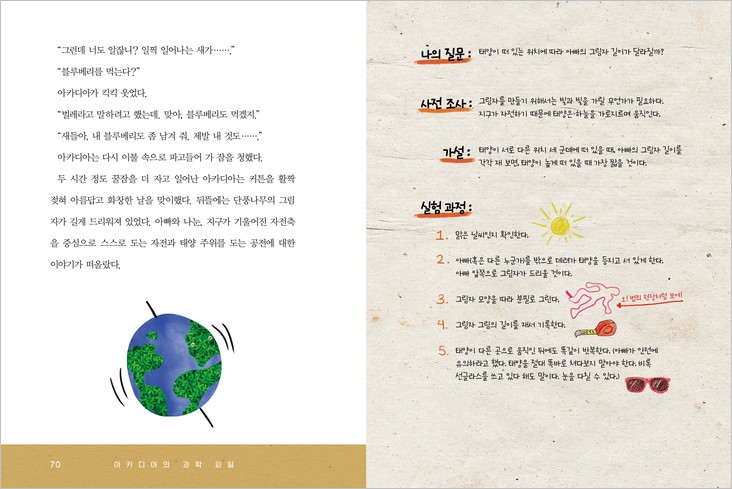 “그런데 너도 알잖니? 일찍 일어나는 새가…….”
“블루베리를 먹는다?”
아카디아가 킥킥 웃었다.
“벌레라고 말하려고 했는데, 맞아, 블루베리도 먹겠지.”
“새들아, 내 블루베리도 좀 남겨 줘. 제발 내 것도…….”
아카디아는 다시 이불 속으로 파고들어 가 잠을 청했다.
두 시간 정도 꿀잠을 더 자고 일어난 아카디아는 커튼을 활짝
젖혀 아름답고 화창한 날을 맞이했다. 뒤뜰에는 단풍나무의 그림
자가 길게 드리워져 있었다. 아빠와 나눈, 지구가 기울어진 자전축
을 중심으로 스스로 도는 자전과 태양 주위를 도는 공전에 대한
이야기가 떠올랐다.
70 아카디아의 과학 파일
나의 질문: 태양이 떠 있는 위치에 따라 아빠의 그림자 길이가 달라질까?
사전 조사: 그림자를 만들기 위해서는 빛과 빛을 가릴 무언가가 필요하다.
지구가 자전하기 때문에 태양은 하늘을 가로지르며 움직인다.
가설: 태양이 서로 다른 위치 세 군데에 떠 있을 때, 아빠의 그림자 길이를
각각 재 보면, 태양이 높게 떠 있을 때 가장 짧을 것이다.
실험 과정:
1. 맑은 날씨인지 확인한다.
2. 아빠(혹은 다른 누군가)를 밖으로 데려가 태양을 등지고 서 있게 한다.
아빠 앞쪽으로 그림자가 드리울 것이다.
3. 그림자 모양을 따라 분필로 그린다.
오! 범죄 현장처럼 보여!
4. 그림자 그림의 길이를 재서 기록한다.
5. 태양이 다른 곳으로 움직인 뒤에도 똑같이 반복한다. (아빠가 안전에
유의하라고 했다. 태양을 절대 똑바로 쳐다보지 말아야 한다. 비록
선글라스를 쓰고 있다 해도 말이다. 눈을 다칠 수 있다.)